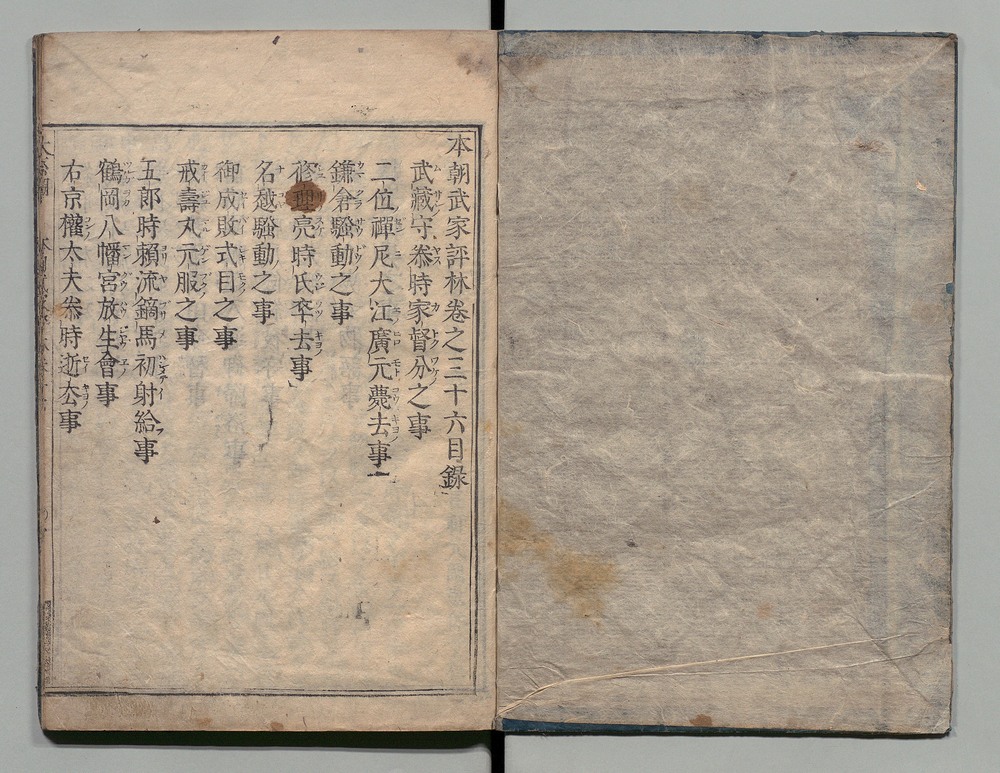 本朝武家評林卷之三十六目錄
武藏守㤗時家督分之事
二位禪尼大江廣元薨去事
鎌倉騷動之事
修理亮時氏卒去事
名越騷動之事
御成敗式目之事
戒壽丸元服之事
五郎時賴流鏑馬初射給事
鶴岡八幡宮放生會事
右京權太夫㤗時逝去事